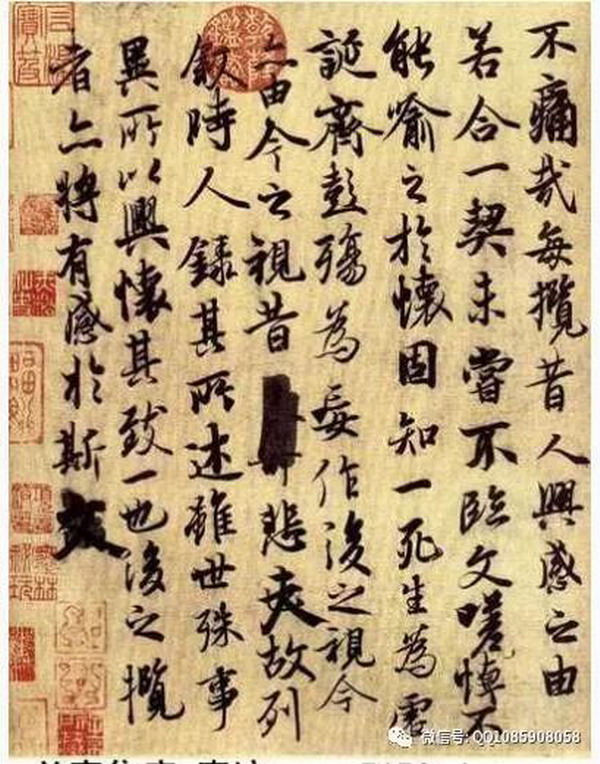 不痛哉每攬昔人興感之由
若合一契未嘗不臨文嗟悼不
能喻之於懷固知一死生為虛
誕齊彭殤為妄作後之視今
亦由今之視昔悲夫故列
敘時人錄其所述雖世殊事
異所以興懷其致一也後之攬
者亦將有感於斯文
微信号: QQ1085908058